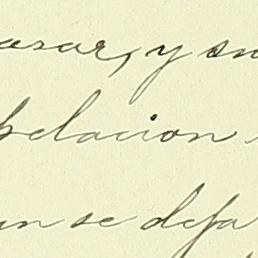 asar, y su
pelacion
un se deja